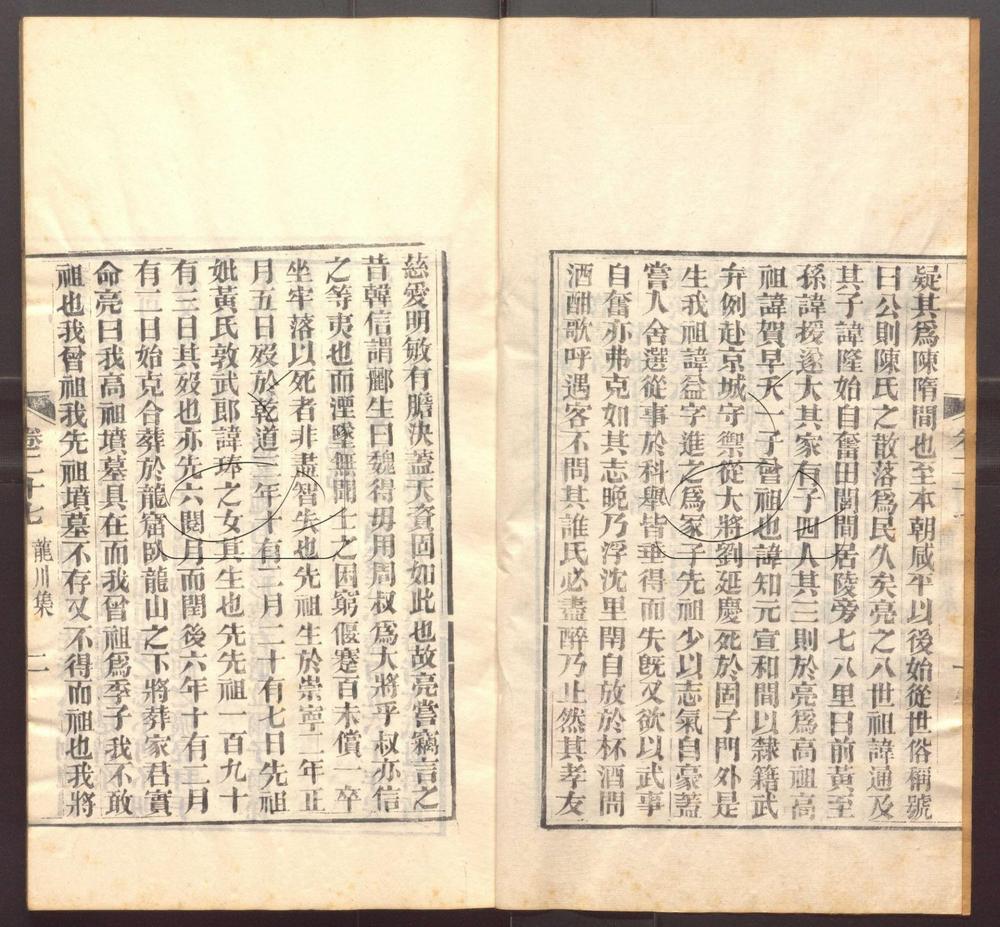 疑其爲陳隋間也至本朝咸平以後始從世俗稱號
曰公則陳氏之散落爲民久矣亮之八世祖諱通及
其子諱隆始自奮田閭間居陵旁七八里曰前黃至
孫諱援遂大其家有子四人其三則於亮爲高祖高
祖諱賀早夭一子曾祖也諱知元宣和間以隸籍武
弁例赴京城守禦從大將劉延慶死於固子門外是
生我祖諱益字進之爲家子先祖少以志氣自豪蓋
嘗入舍選從事於科舉皆垂得而失旣又欲以武事
自奮亦弗克如其志晚乃浮沈里閈自放於杯酒間
酒酣歌呼遇客不問其誰氏必盡醉乃止然其孝友
慈愛明敏有膽決蓋天資固如此也故亮嘗竊言之
昔韓信謂酈生曰魏得毋用周叔爲大將乎叔亦信
之等夷也而湮墜無聞士之困窮偃蹇百未償一卒
坐牢落以死者非盡智失也先祖生於崇寧二年正
月五日歿於乾道三年十有二月二十有七日先祖
妣黃氏敦武郎諱琫之女其生也先先祖一百九十
有三日其歿也亦先六閱月而閏後六年十有二月
有二日始克合葬於龍窟臥龍山之下將葬家君實
命亮曰我高祖墳墓具在而我曾祖爲季子我不敢
祖也我曾祖我先祖墳墓不存又不得而祖也我將
卷二十七 龍川集 二